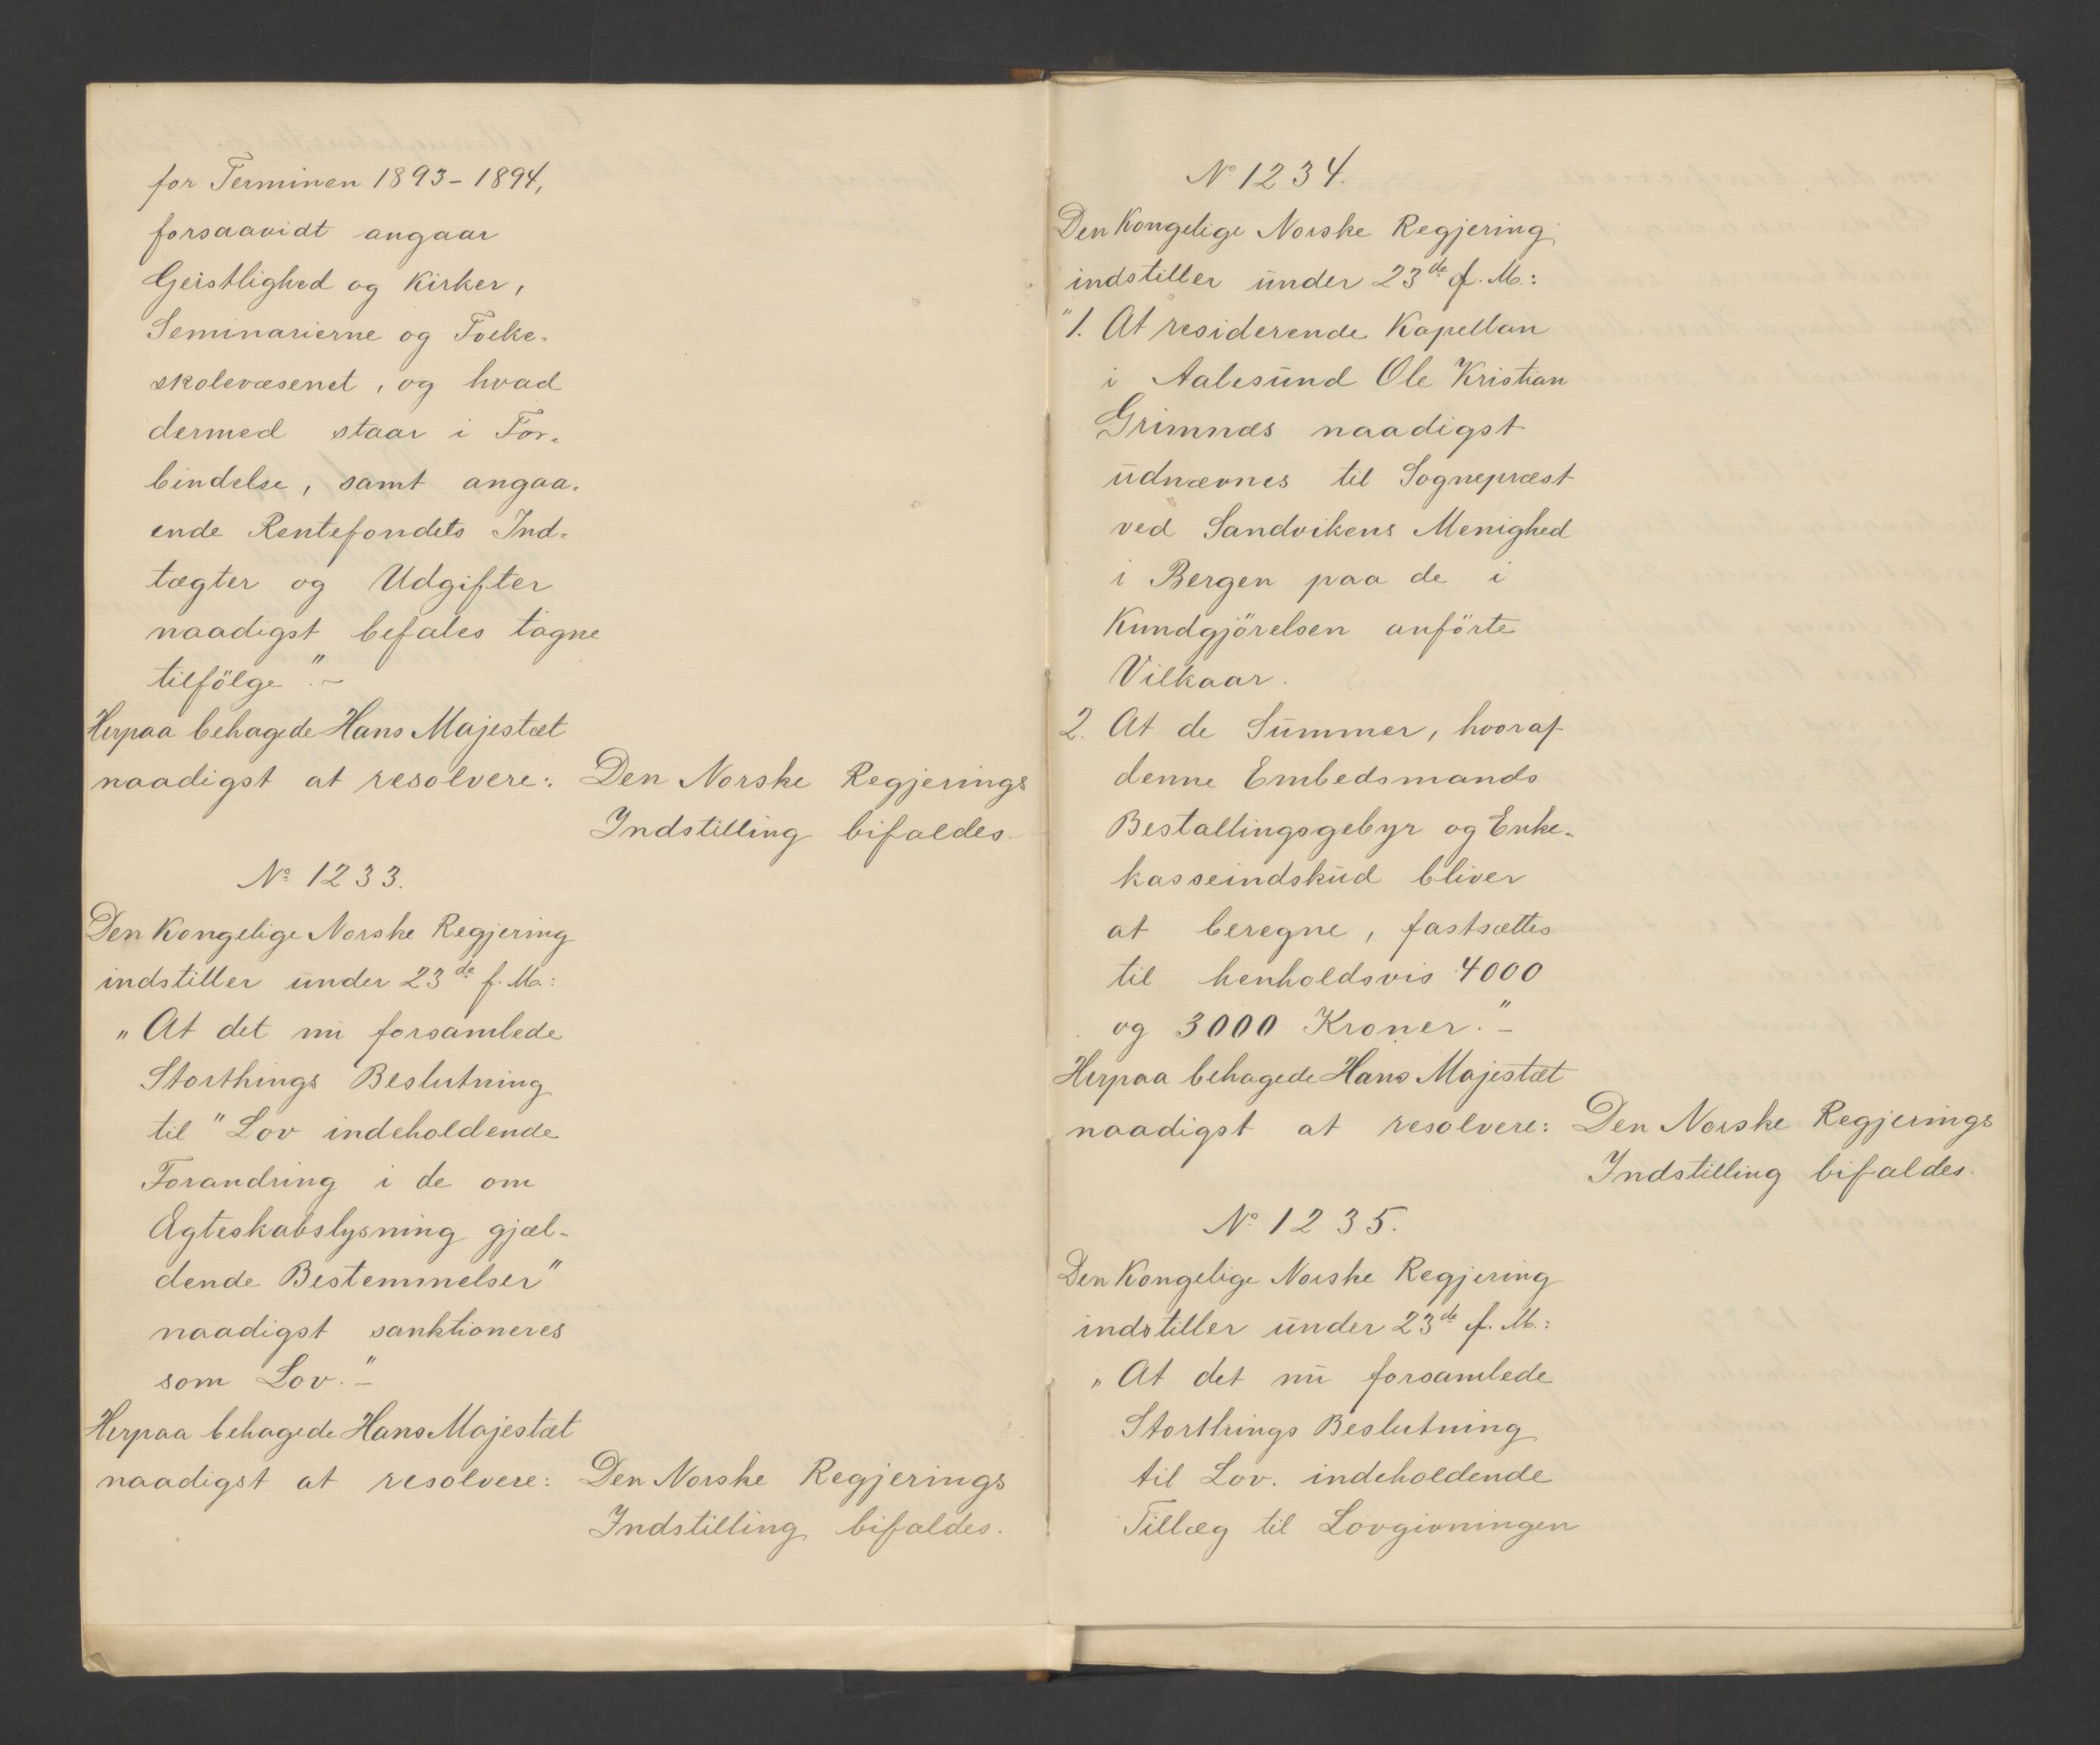 for Terminen 1893-1894,
forsaavidt angaar
Geistlighed og Kirker,
Seminarierne og Folke-
skolevæsenet, og hvad
dermed staar i For-
bindelse, samt angaa-
ende Rentefondets Ind-
tægter og Udgifter
naadigst befales tagne
tilfölge".-
Herpaa behagede Hans Majestæt
naadigst at resolvere: Den Norske Regjerings
Indstilling bifaldes.
No 1233.
Den Kongelige Norske Regjering
indstiller under 23de f. M.:
"At det nu forsamlede
Storthings Beslutning
til "Lov indeholdende
Forandring i de om
Ægteskabslysning gjæl-
dende Bestemmelser"
naadigst sanktioneres
som Lov."-
Herpaa behagede Hans Majestæt
naadigst at resolvere: Den Norske Regjerings
Indstilling bifaldes.
No 1234.
Den Kongelige Norske Regjering
indstiller under 23de f. M.:
"1. At residerende Kapellan
i Aalesund Ole Kristian
Grimnæs naadigst
udnævnes til Sognepræst
ved Sandvikens Menighed
i Bergen paa de i
Kundgjörelsen anförte
Vilkaar.
2. At de Summer, hvoraf
denne Embedsmands
Bestallingsgebyr og Enke-
kasseindskud bliver
at beregne, fastsættes
til henholdsvis 4000
og 3000 Kroner."-
Herpaa behagede Hans Majestæt
naadigst at resolvere: Den Norske Regjerings
Indstilling bifaldes.
No 1235.
Den Kongelige Norske Regjering
indstiller under 23de f. M.:
"At det nu forsamlede
Storthings Beslutning
til Lov. indeholdende
Tillæg til Lovgivningen